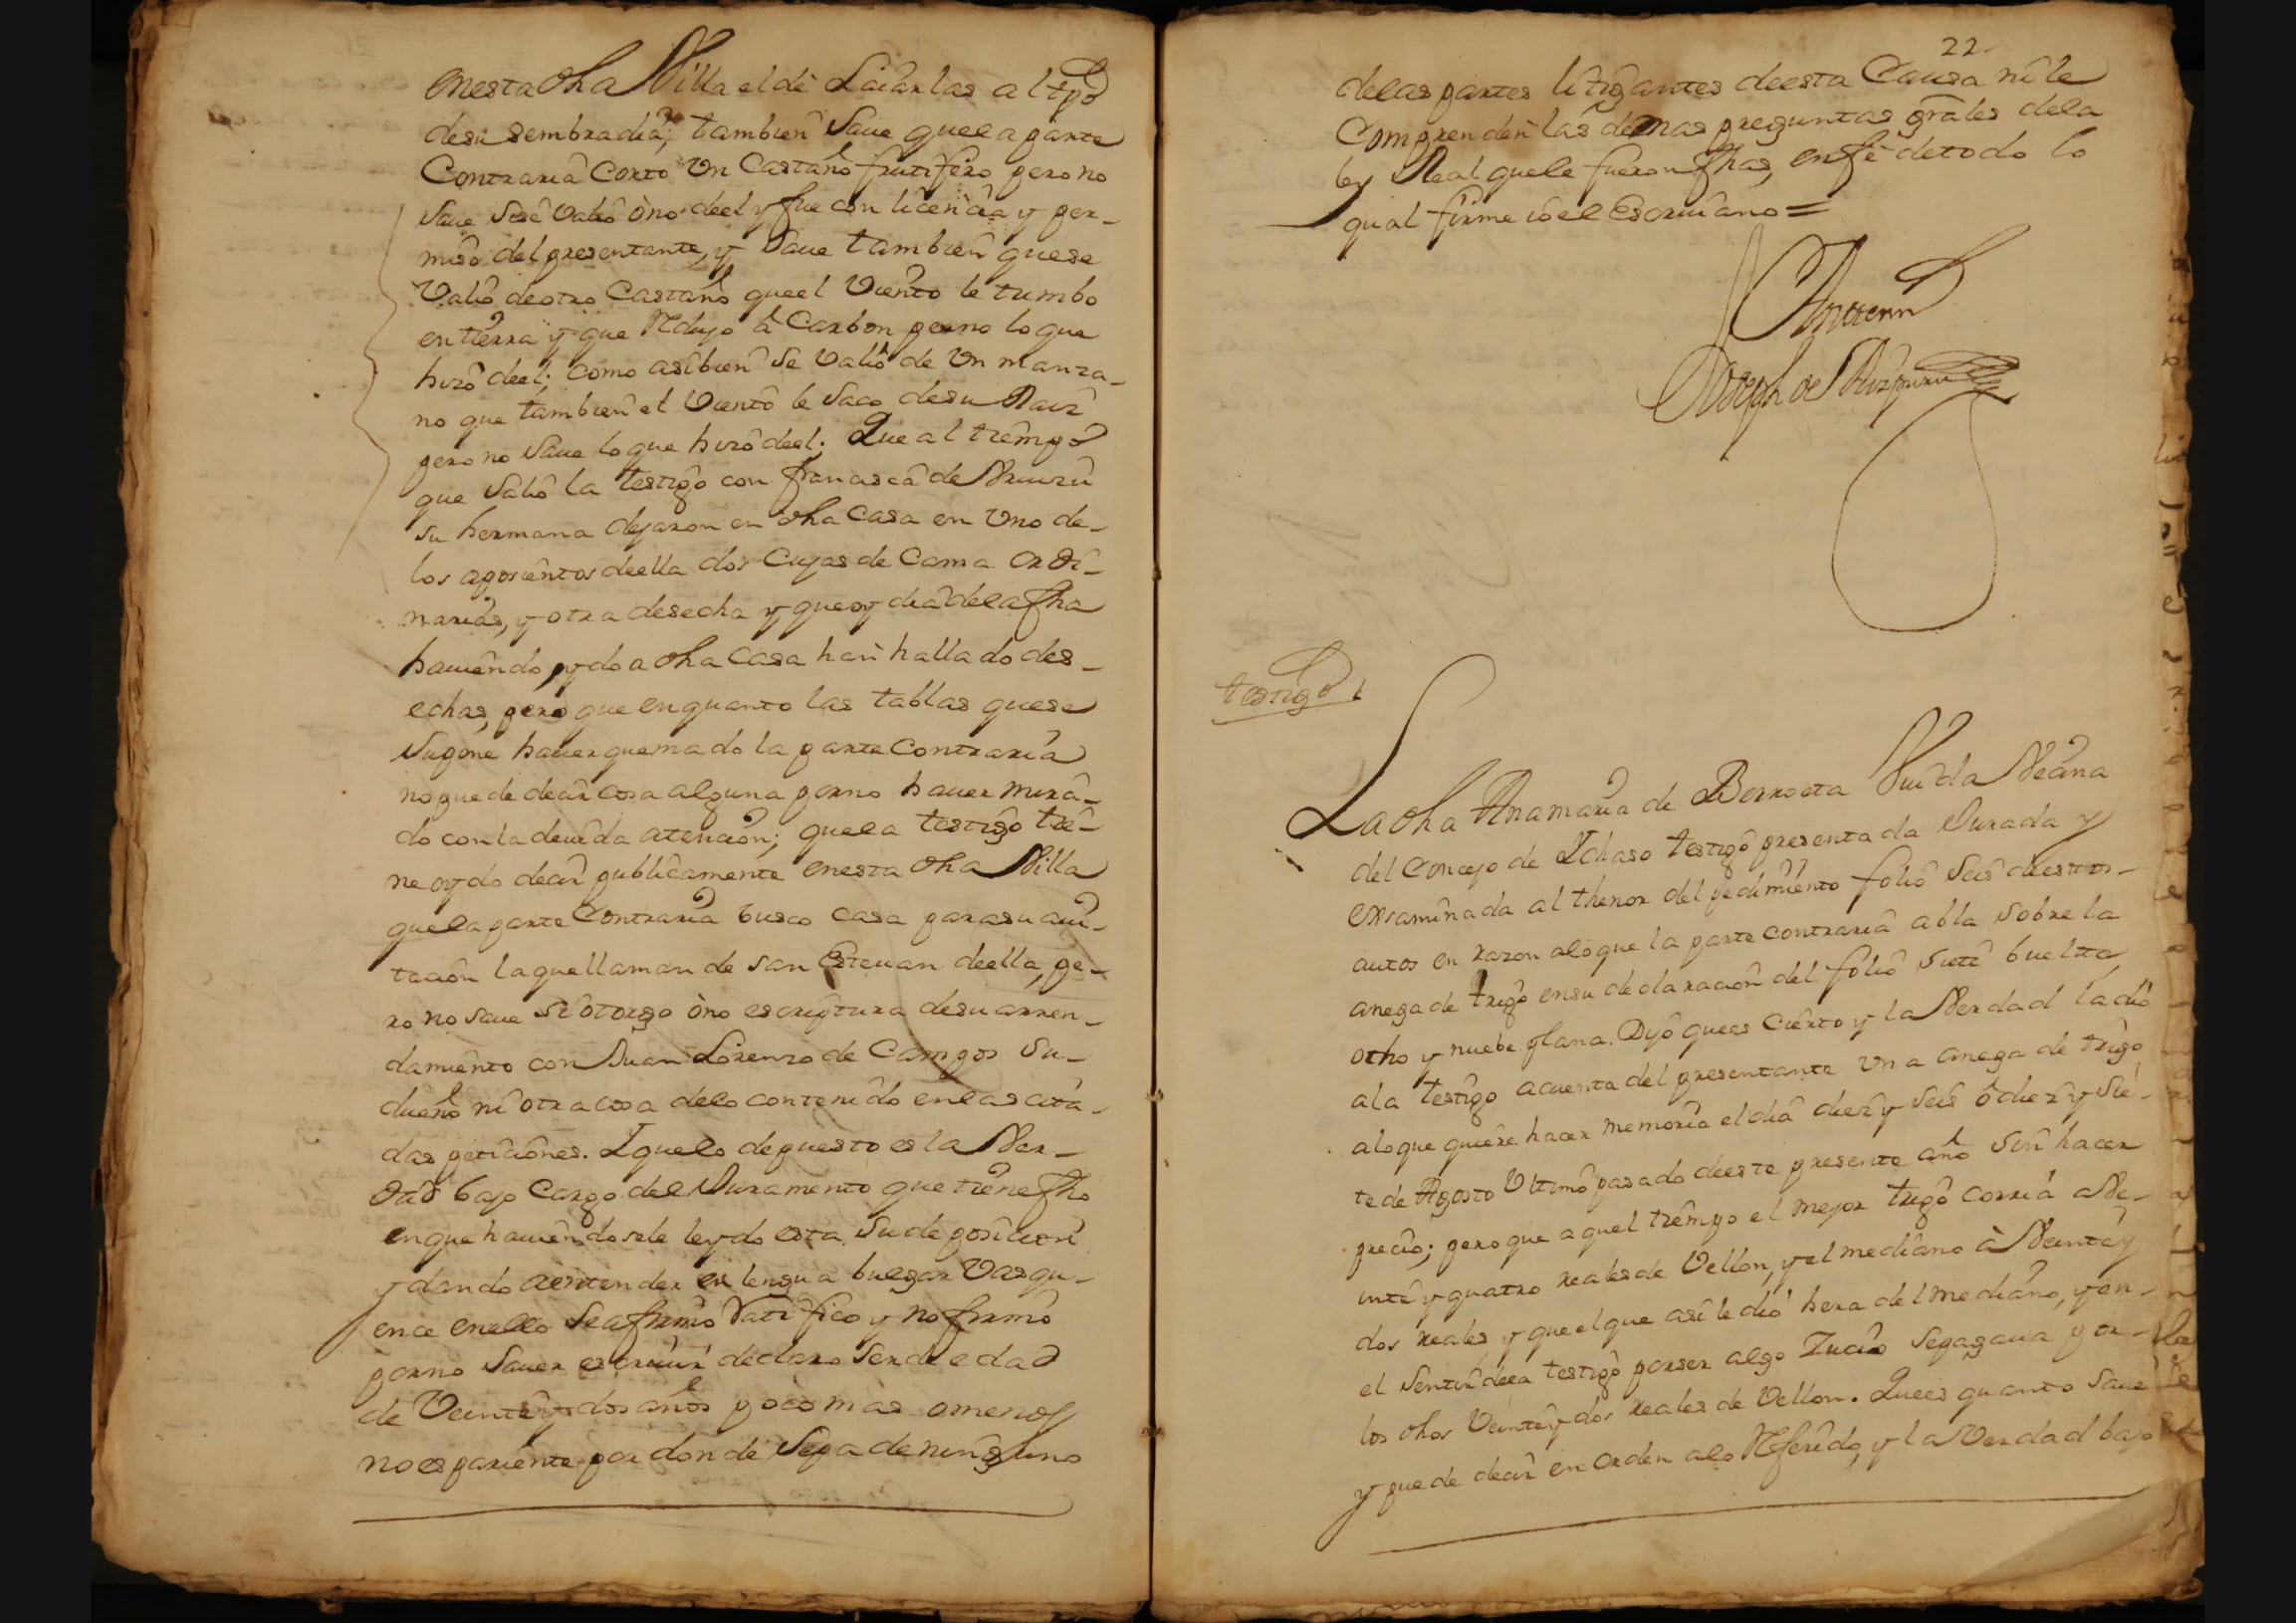 enesta dha Villa el de Laiarlas al tpo
desu sembradia; tambien Saue quela parte
Contraria Corto Vn Castaño frutifero pero no
Saue Sise Valio òno deel y fue con licencia y per-
miso del presentante, y Saue tambien quese
Valio deotro Castaño queel Viento le tumbo
en tierra y que Redujo à Carbon perno lo que
hizo deel; como asibien se Valio de Vn manza-
no que tambien el Viento le Saco desu Raiz
pero no Saue lo que hizo deel; Que al tiempo
que Salio la testigo con francisca de
su hermana dejaron en dha Casa en Vno de-
los aposientos deella dos Cujas de Cama ordi-
narias, y otra desecha y queoy dia dela fha
hauiendo ydo a dha Casa han hallado des-
echas, pero que enquanto las tablas quese
Supone hauer quemado la parte Contraria
nopuede decir cosa alguna porno hauer mira-
do conla deuida atencion; quela testigo tie-
ne oydo decir publicamente enesta dha Villa
quela parte Contraria busco casa parasu aui-
tacion laquellaman de san Esteuan deella, pe-
ro no saue si otorgo òno escriptura desu arren-
damiento con Juan Lorenzo de Campos Su-
dueño ni otra cosa delo contenido enlas cita-
das peticiones. I quelo depuesto es la Ver-
dad bajo Cargo del Juramento que tiene fho
enque hauiendosele leydo esta Su deposicion
y dando aentender en lengua bulgar Vasqu-
ence enello Seafirmo Ratifico y no firmo
porno Sauer escriuir declaro Ser de edad
de Veinte y dos años poco mas omenos
no es pariente por donde Sepa de ninguno
22
delas partes litigantes deesta Causa nile
Comprenden las demas preguntas grales dela
ley Real quele fueron fhas, enfe detodo lo
qual firme io el Escriuano =
Antemi
Joseph de
testigo
La dha Anamaria de Berroeta Viuda Vecina
del Concejo de Ichaso testigo presentada Jurada y
exsaminada al thenor del pedimiento folio Seis deestos-
autos en razon aloque la parte contraria abla sobre la
anega de trigo ensu declaracion del folio siete buelta,
otho y nuebe plana. Dijo quees Cierto y la Verdad ladio
ala testigo acuenta del presentante Vna anega de trigo
aloque quiere hacer memoria el dia diez y seis ò diez y sie-
te de Agosto Vltimo pasado deeste presente año Sin hacer
precio; pero que aquel tiempo el mejor trigo corria aVe-
inte y quatro reales de Vellon, y el mediano à Veinte y
dos reales y que el que asi le dio hera del mediano, y en-
el Sentir dela testigo porser algo Zucio Sepagaua por-
los dhos Veinte y dos reales de Vellon. Quees quanto Saue
y puede decir en Orden alo Referido, y la Verdad bajo